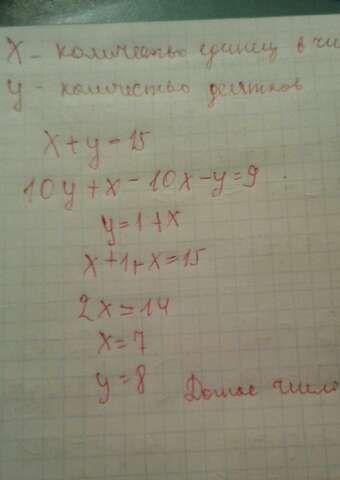 X - количество единиц в чи
y - количество десятков
x + y = 15
10y + x - 10x - y = 9
y = 1 + x
x + 1 + x = 15
2x = 14
x = 7
y = 8
число